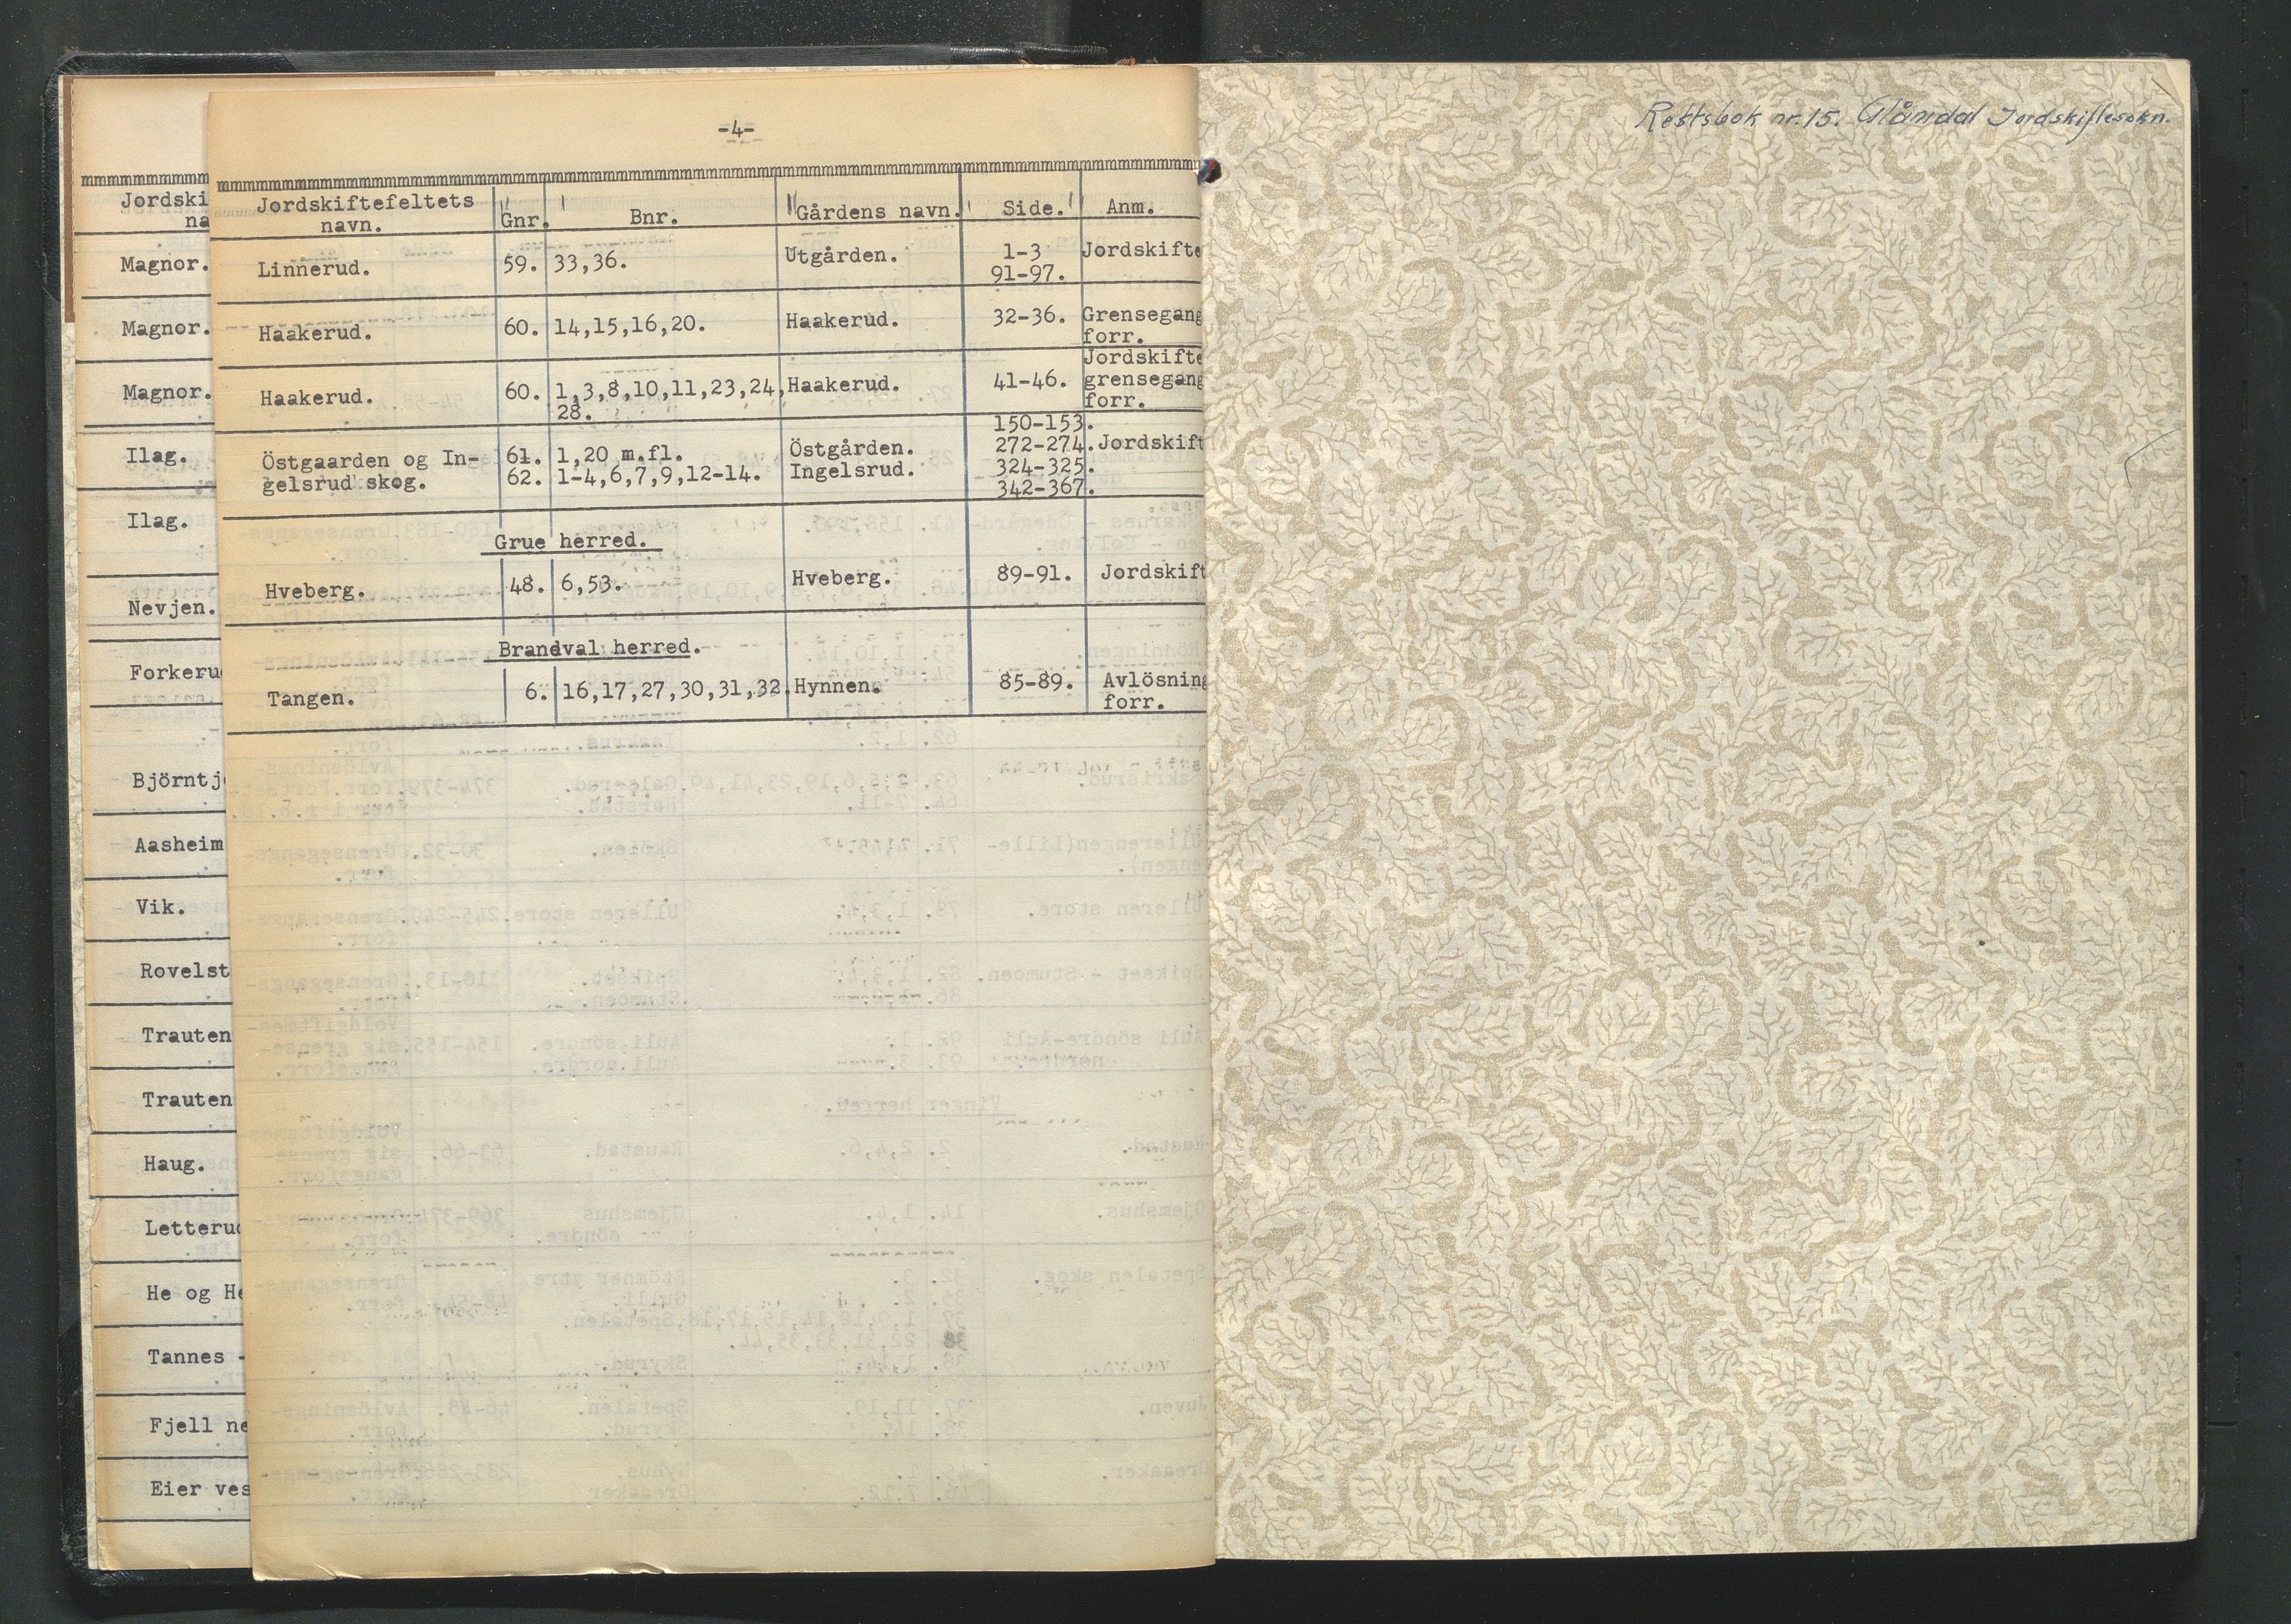 -4-
mmmmmmmmmmmmmmmmmmmmmmmmmmmmmmmmmmmmmmmmmmmmmmmmmmmmmmmmmmmmmmmmmmmmmmmmmm
Jordskiftefeltets navn. Gnr. Bnr. Gårdens navn. Side. Anm.
Linnerud. 59. 33,36. Utgården. 1-3 Jordskifte
91-97.
Haakerud. 60. 14,15,16,20. Haakerud. 32-36. Grensegang
forr.
Haakerud. 60. 1,3,8,10,11,23,24, Haakerud. 41-46. Jordskifte
28. grensegang
forr.
150-153.
Östgaarden og In- 61. 1,20 m.fl. Östgården. 272-274. Jordskift
gelsrud skog. 62. 1-4,6,7,9,12-14. Ingelsrud. 324-325.
342-367.
Grue herred.
Hveberg. 48. 6,53. Hveberg. 89-91. Jordskift
Brandval herred.
Tangen. 6. 16,17,27,30,31,32. Hynnen. 85-89. Avlösning
forr.
mmmmmmmmmm
Jordski
na
Magnor.
Magnor.
Magnor.
Ilag.
Ilag.
Nevjen.
Forkeru
Björntj
Aasheim
Vik.
Rovelst
Trauten
Trauten
Haug.
Letteru
He og He
Tannes -
Fjell ne
Eier ves
Rettsbok nr. 15. Glåmdal Jordskiftesokn.